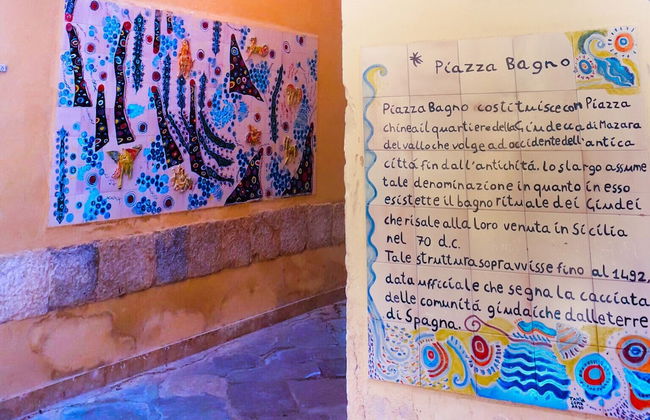 * Piazza Bagno
Piazza Bagno costituisce con Piazza
chinea il quartiere della Giudecca di Mazara
del vallo che volge ad occidente dell'antica
città fin dall'antichità. lo slargo assume
tale denominazione in quanto in esso
esistette il bagno rituale dei Giudei
che risale alla loro venuta in Sicilia
nel 70 d.c.
Tale struttura sopravvisse fino al 1492,
data ufficiale che segna la cacciata
delle comunitá giudaiche dalle terre
di Spagna.